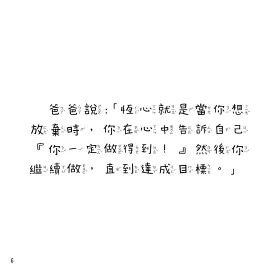 爸爸說:「恆心就是當你想
放棄時,你在心中告訴自己
『你一定做得到!』然後你
繼續做,直到達成目標。」
6